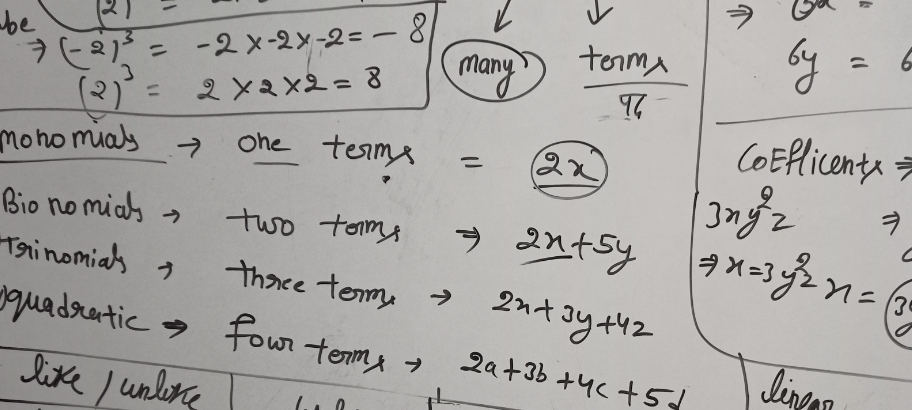 be
⇒ (-2)³ = -2 × -2 × -2 = - 8
(2)³ = 2 × 2 × 2 = 8
many terms
⇒
6y = 6
monomials → one terms = 2x
Bionomials → two terms ⇒ 2x+5y
trinomials → three terms → 2x+3y+4z
quadratic ⇒ four terms → 2a+3b+4c+5d
Coefficents ⇒
3xy²z ⇒
⇒ x = 3y²z x = 3y
like / unlike
linear